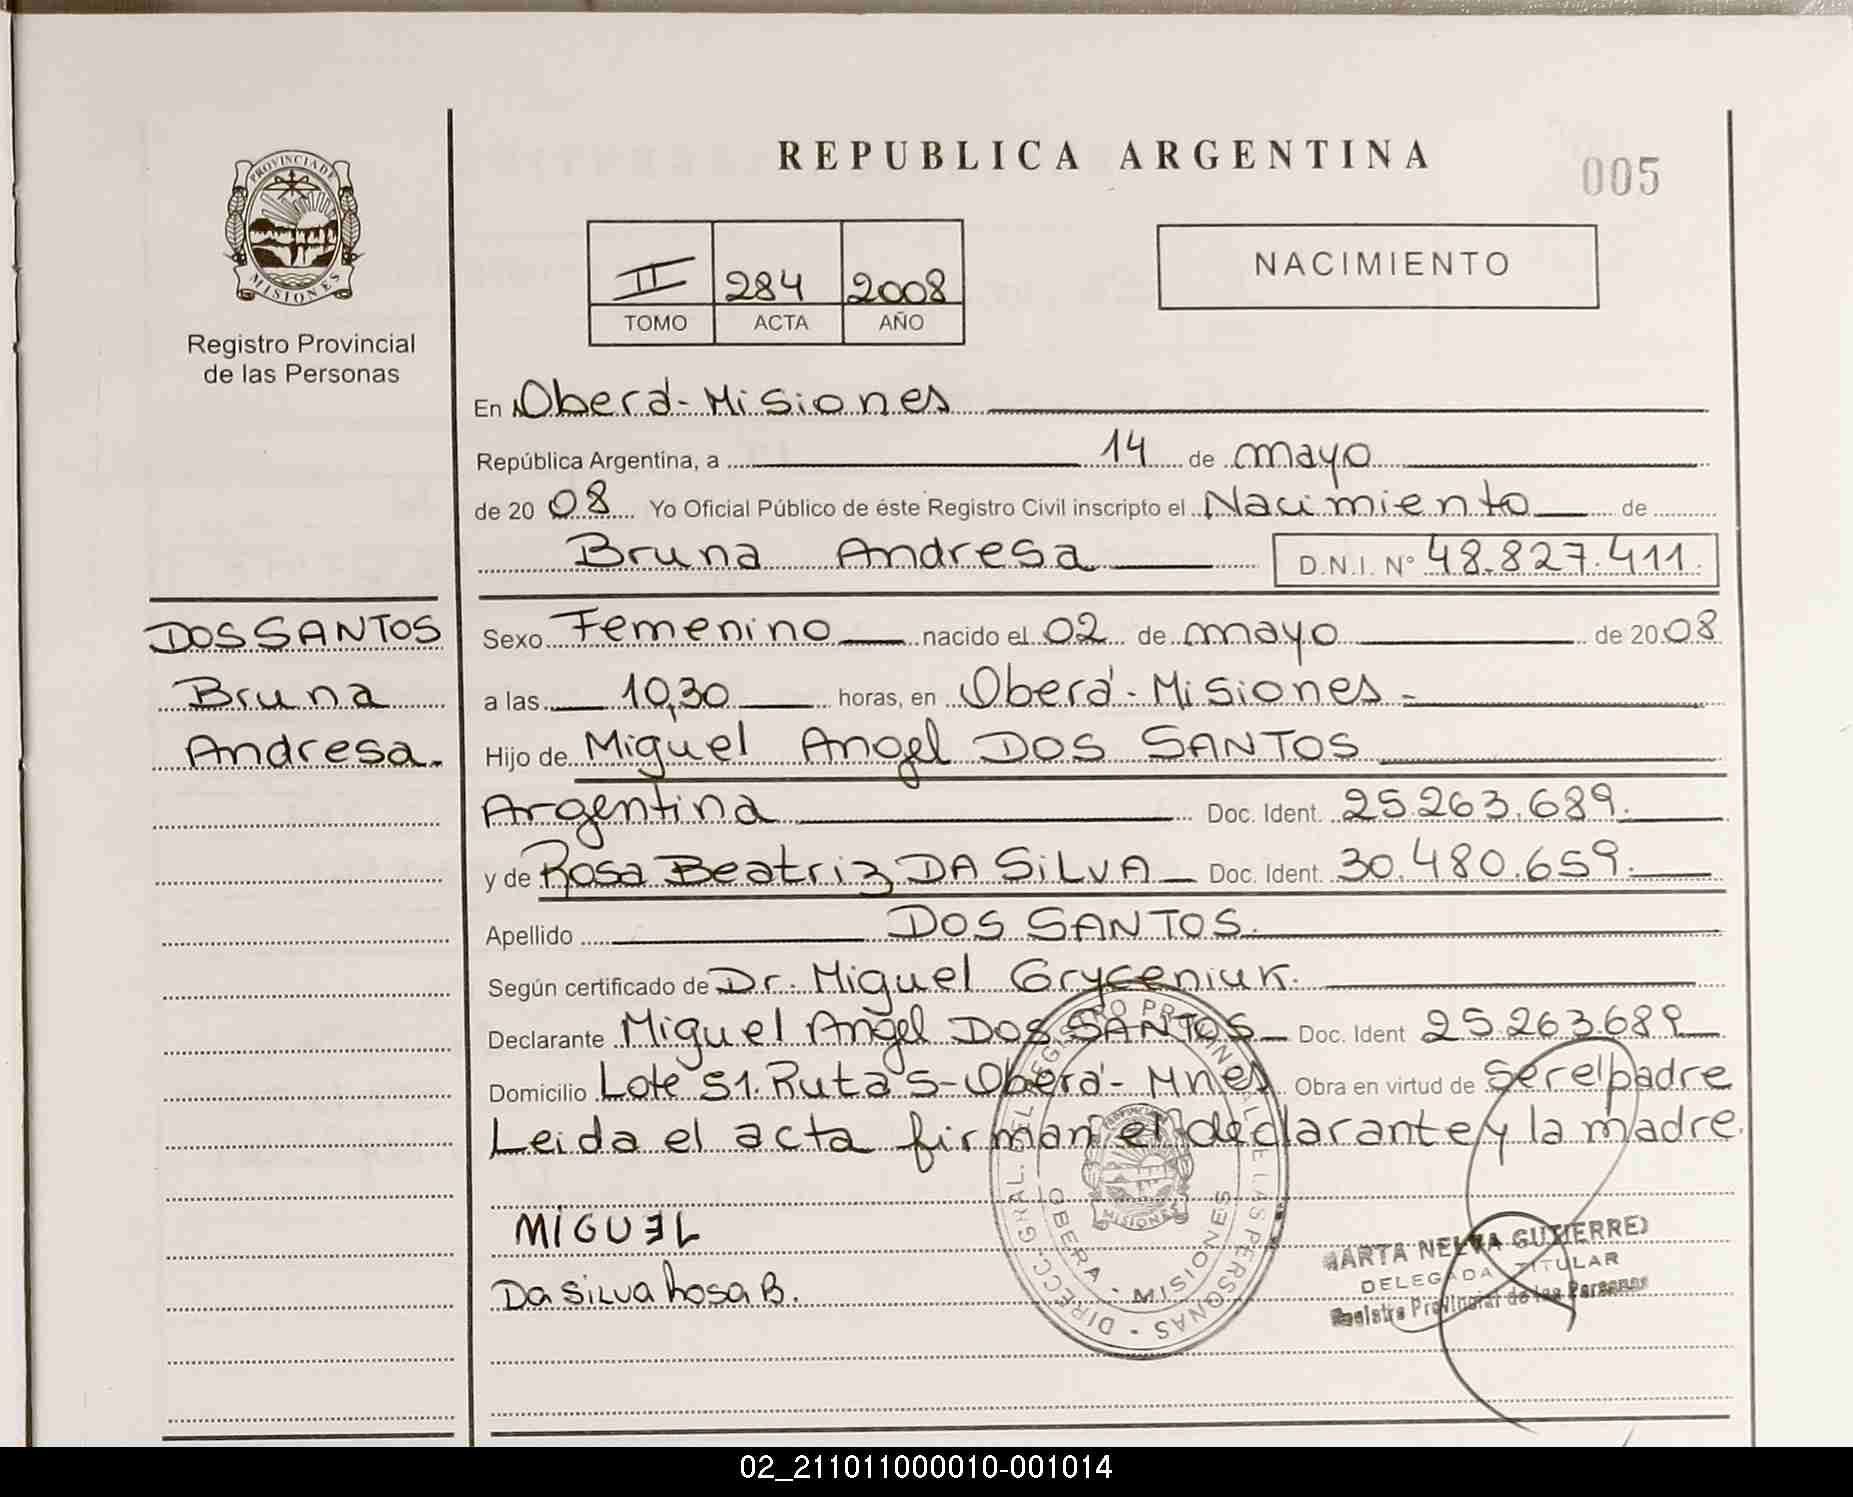 REPUBLICA ARGENTINA
005
PROVINCIA DE
MISIONES
Registro Provincial
de las Personas
II 284 2008
TOMO ACTA AÑO
NACIMIENTO
En Oberá-Misiones
República Argentina, a 14 de mayo
de 20 08 Yo Oficial Público de éste Registro Civil inscripto el Nacimiento de
Bruna Andresa D.N.I. N° 48.827.411.
DOS SANTOS
Bruna
Andresa.
Sexo Femenino nacido el 02 de mayo de 20 08
a las 10,30 horas, en Oberá-Misiones-
Hijo de Miguel Angel DOS SANTOS
Argentina Doc. Ident. 25.263.689.
y de Rosa Beatriz DA SILVA Doc. Ident. 30.480.659.
Apellido DOS SANTOS.
Según certificado de Dr. Miguel Gryceniuk.
Declarante Miguel Angel DOS SANTOS Doc. Ident 25.263.689
Domicilio Lote 51. Ruta 5-Oberá-Mnes Obra en virtud de ser el padre
Leida el acta firman el declarante y la madre.
MIGUEL
Da Silva Rosa B.
DIRECC. GRAL. DEL REGISTRO PROVINCIAL DE LAS PERSONAS
OBERA - MISIONES
MISIONES
MARTA NELVA GUTIERREZ
DELEGADA TITULAR
Registro Provincial de las Personas
02_211011000010-001014